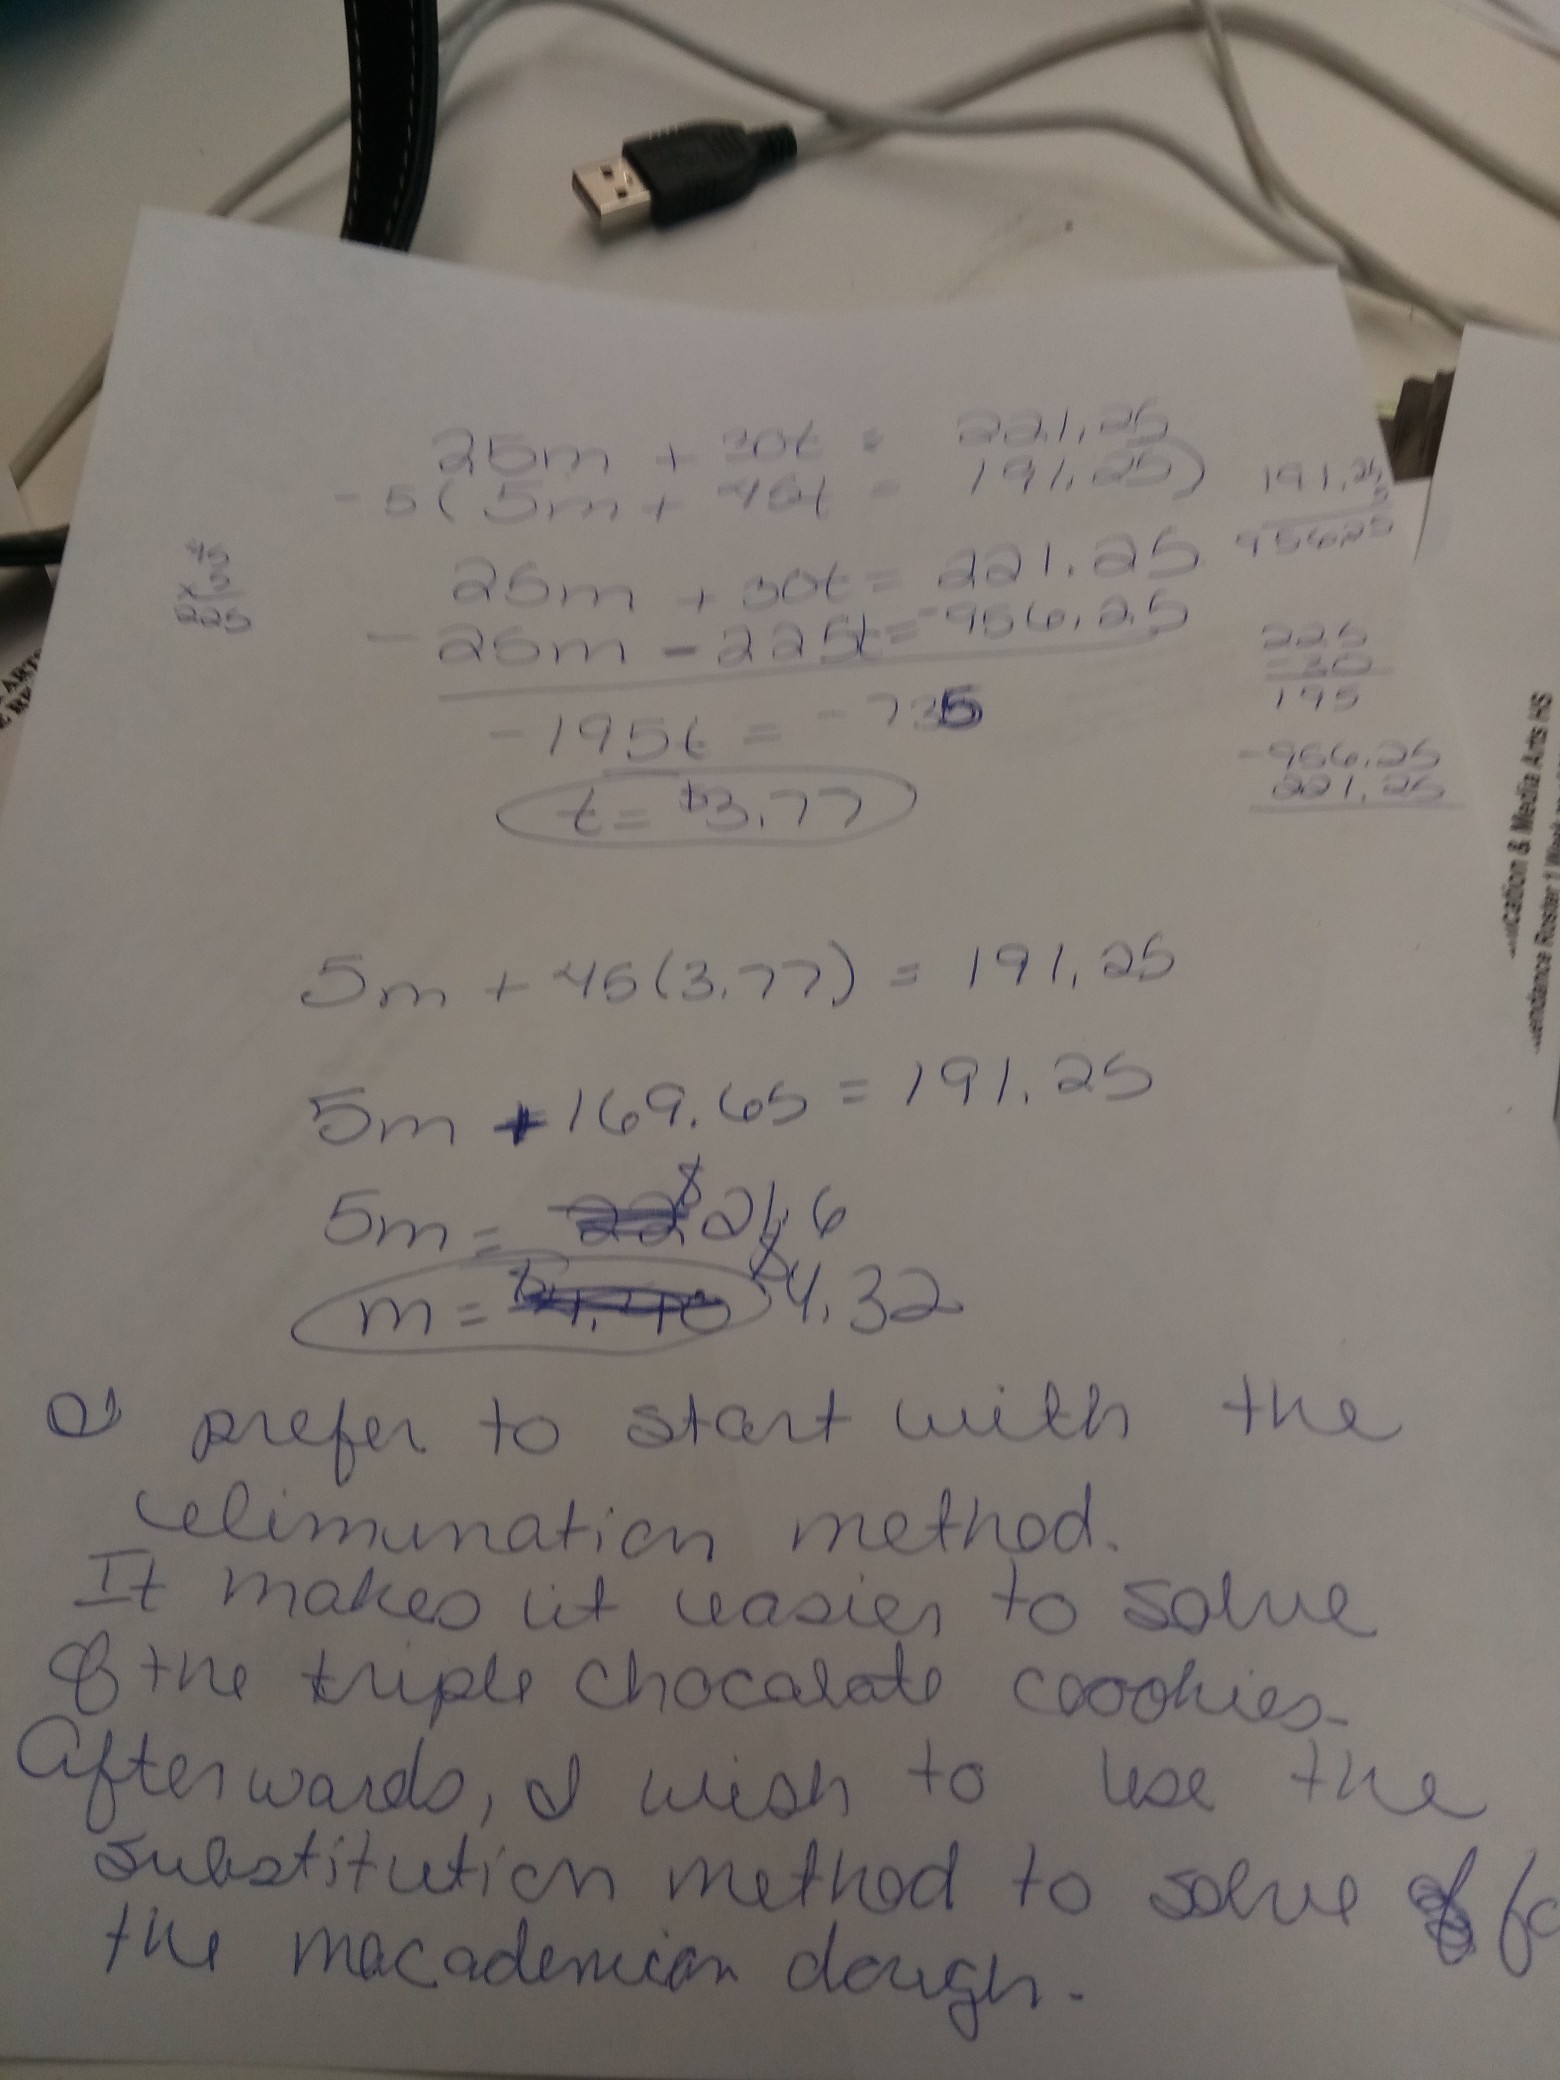 25m + 30t = 221.25
-5(5m + 45t = 191.25)
191.25
5
956.25
45
x 5
225
25m + 30t = 221.25
- 25m - 225t = -956.25
225
-30
195
-195t = -735
-956.25
221.25
t = $3.77
5m + 45(3.77) = 191.25
5m + 169.65 = 191.25
5m = 22 $21.6
m = $4.40 $4.32
I prefer to start with the
elimination method.
It makes it easier to solve
of the triple chocalate coookies.
Afterwards, I wish to use the
substitution method to solve fo
the macademian dough.
cation & Media Arts HS
endance Roster 1
ARTS